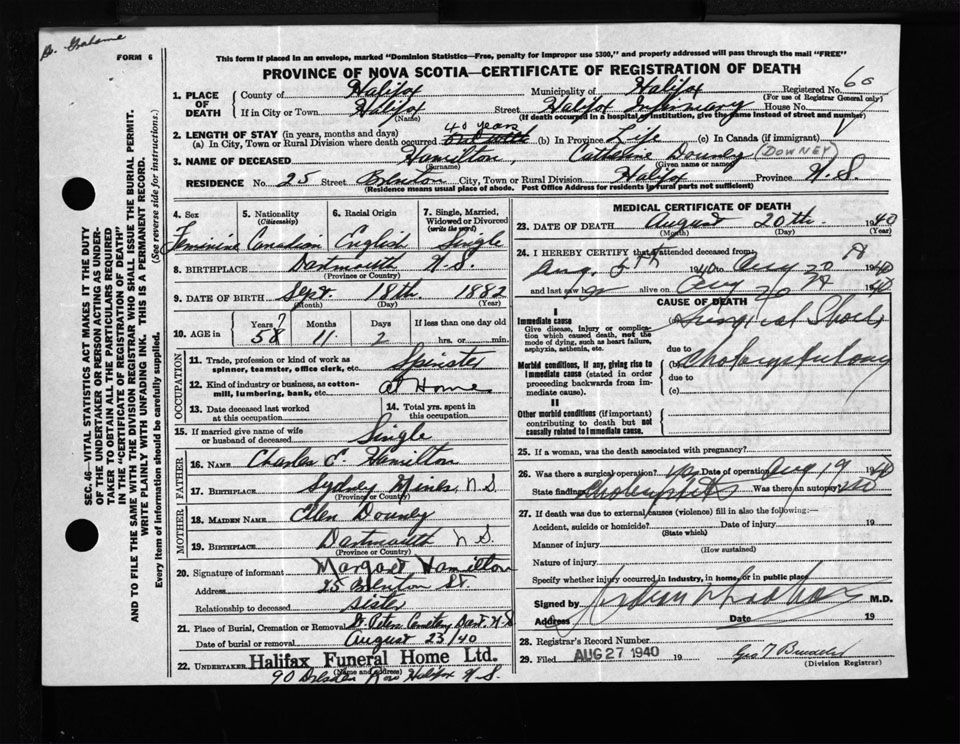 Dr. Grahame
FORM 6
This form if placed in an envelope, marked "Dominion Statistics—Free, penalty for improper use $300," and properly addressed will pass through the mail "FREE"
PROVINCE OF NOVA SCOTIA—CERTIFICATE OF REGISTRATION OF DEATH
SEC. 46—VITAL STATISTICS ACT MAKES IT THE DUTY
OF THE UNDERTAKER OR PERSON ACTING AS UNDER-
TAKER TO OBTAIN ALL THE PARTICULARS REQUIRED
IN THE "CERTIFICATE OF REGISTRATION OF DEATH"
AND TO FILE THE SAME WITH THE DIVISION REGISTRAR WHO SHALL ISSUE THE BURIAL PERMIT.
WRITE PLAINLY WITH UNFADING INK. THIS IS A PERMANENT RECORD.
Every item of information should be carefully supplied. (See reverse side for instructions.)
1. PLACE OF DEATH
County of Halifax Municipality of Halifax Registered No. 60
(For use of Registrar General only)
If in City or Town Halifax Street Halifax Infirmary House No.
(Name) (If death occurred in a hospital or institution, give the name instead of street and number)
2. LENGTH OF STAY (in years, months and days)
(a) In City, Town or Rural Division where death occurred 40 years (b) In Province Life (c) In Canada (if immigrant)
3. NAME OF DECEASED Hamilton, Catherine Downey (DOWNEY)
(Surname) (Given name or names)
RESIDENCE No. 25 Street Brenton City, Town or Rural Division Halifax Province N.S.
(Residence means usual place of abode. Post Office Address for residents in rural parts not sufficient)
4. Sex Feminine
5. Nationality (Citizenship) Canadian
6. Racial Origin English
7. Single, Married, Widowed or Divorced (write the word) Single
8. BIRTHPLACE Dartmouth N.S.
(Province or Country)
9. DATE OF BIRTH Sept 18th 1882
(Month) (Day) (Year)
10. AGE in Years 58 7 Months 11 Days 2 If less than one day old
hrs. or min.
OCCUPATION
11. Trade, profession or kind of work as spinner, teamster, office clerk, etc. Spinster
12. Kind of industry or business, as cotton-mill, lumbering, bank, etc. at Home
13. Date deceased last worked at this occupation
14. Total yrs. spent in this occupation
15. If married give name of wife or husband of deceased Single
FATHER
16. NAME Charles E. Hamilton
17. BIRTHPLACE Sydney Mines, N.S.
(Province or Country)
MOTHER
18. MAIDEN NAME Ellen Downey
19. BIRTHPLACE Dartmouth N.S.
(Province or Country)
20. Signature of informant Margaret Hamilton
Address 25 Brenton St.
Relationship to deceased sister
21. Place of Burial, Cremation or Removal St. Peters Cemetery Dart. N.S
Date of burial or removal August 23/40
22. UNDERTAKER Halifax Funeral Home Ltd.
(Name and address)
90 Dresden Row Halifax N.S.
MEDICAL CERTIFICATE OF DEATH
23. DATE OF DEATH August 20th 1940
(Month) (Day) (Year)
24. I HEREBY CERTIFY that I attended deceased from
Aug. 5th 1940 to Aug 20 1940
and last saw h alive on Aug 20 1940
CAUSE OF DEATH
I
Immediate cause
Give disease, injury or complication which caused death, not the mode of dying, such as heart failure, asphyxia, asthenia, etc.
Surgical Shock
due to
Morbid conditions, if any, giving rise to immediate cause (stated in order proceeding backwards from immediate cause).
due to
(c)
II
Other morbid conditions (if important) contributing to death but not causally related to immediate cause.
25. If a woman, was the death associated with pregnancy?
26. Was there a surgical operation? Yes Date of operation Aug 19 1940
State findings Was there an autopsy? no
27. If death was due to external causes (violence) fill in also the following:—
Accident, suicide or homicide? Date of injury 19
(State which)
Manner of injury
(How sustained)
Nature of injury
Specify whether injury occurred in industry, in home, or in public place
Signed by M.D.
Address Date 19
28. Registrar's Record Number
29. Filed AUG 27 1940 19 Geo T
(Division Registrar)